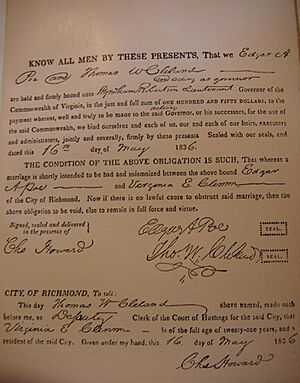 KNOW ALL MEN BY THESE PRESENTS, That we Edgar A
Poe and Thomas W Cleland
and acting as governor
are held and firmly bound unto Wyndham Robertson Lieutenant Governor of the
Commonwealth of Virginia, in the just and full sum of ONE HUNDRED AND FIFTY DOLLARS, to the
payment whereof, well and truly to be made to the said Governor, or his successors, for the use of
the said Commonwealth, we bind ourselves and each of us, our and each of our heirs, executors
and administrators, jointly and severally, firmly by these presents. Sealed with our seals, and
dated this 16th day of May 1836.
THE CONDITION OF THE ABOVE OBLIGATION IS SUCH, That whereas a
marriage is shortly intended to be had and solemnized between the above bound Edgar
A Poe and Virginia E. Clemm
of the City of Richmond. Now if there is no lawful cause to obstruct said marriage, then the
above obligation to be void, else to remain in full force and virtue.
Signed, sealed and delivered
in the presence of
Edgar A Poe SEAL.
Cho Howard
Tho. W. Cleland SEAL.
CITY OF RICHMOND, To wit:
This day Thomas W Cleland above named, made oath
before me, as Deputy Clerk of the Court of Hustings for the said City, that
Virginia E Clemm is of the full age of twenty-one years, and a
resident of the said City. Given under my hand, this 16 day of May 1836
Cho Howard